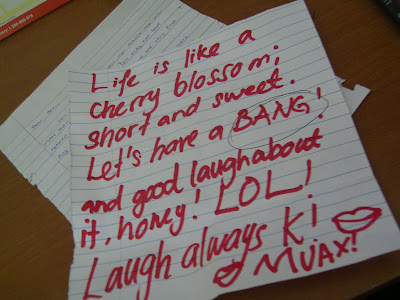 Life is like a
cherry blossom;
short and sweet.
Let's have a BANG!
and good laugh about
it, honey! LOL!
Laugh always Ki
MUAX!